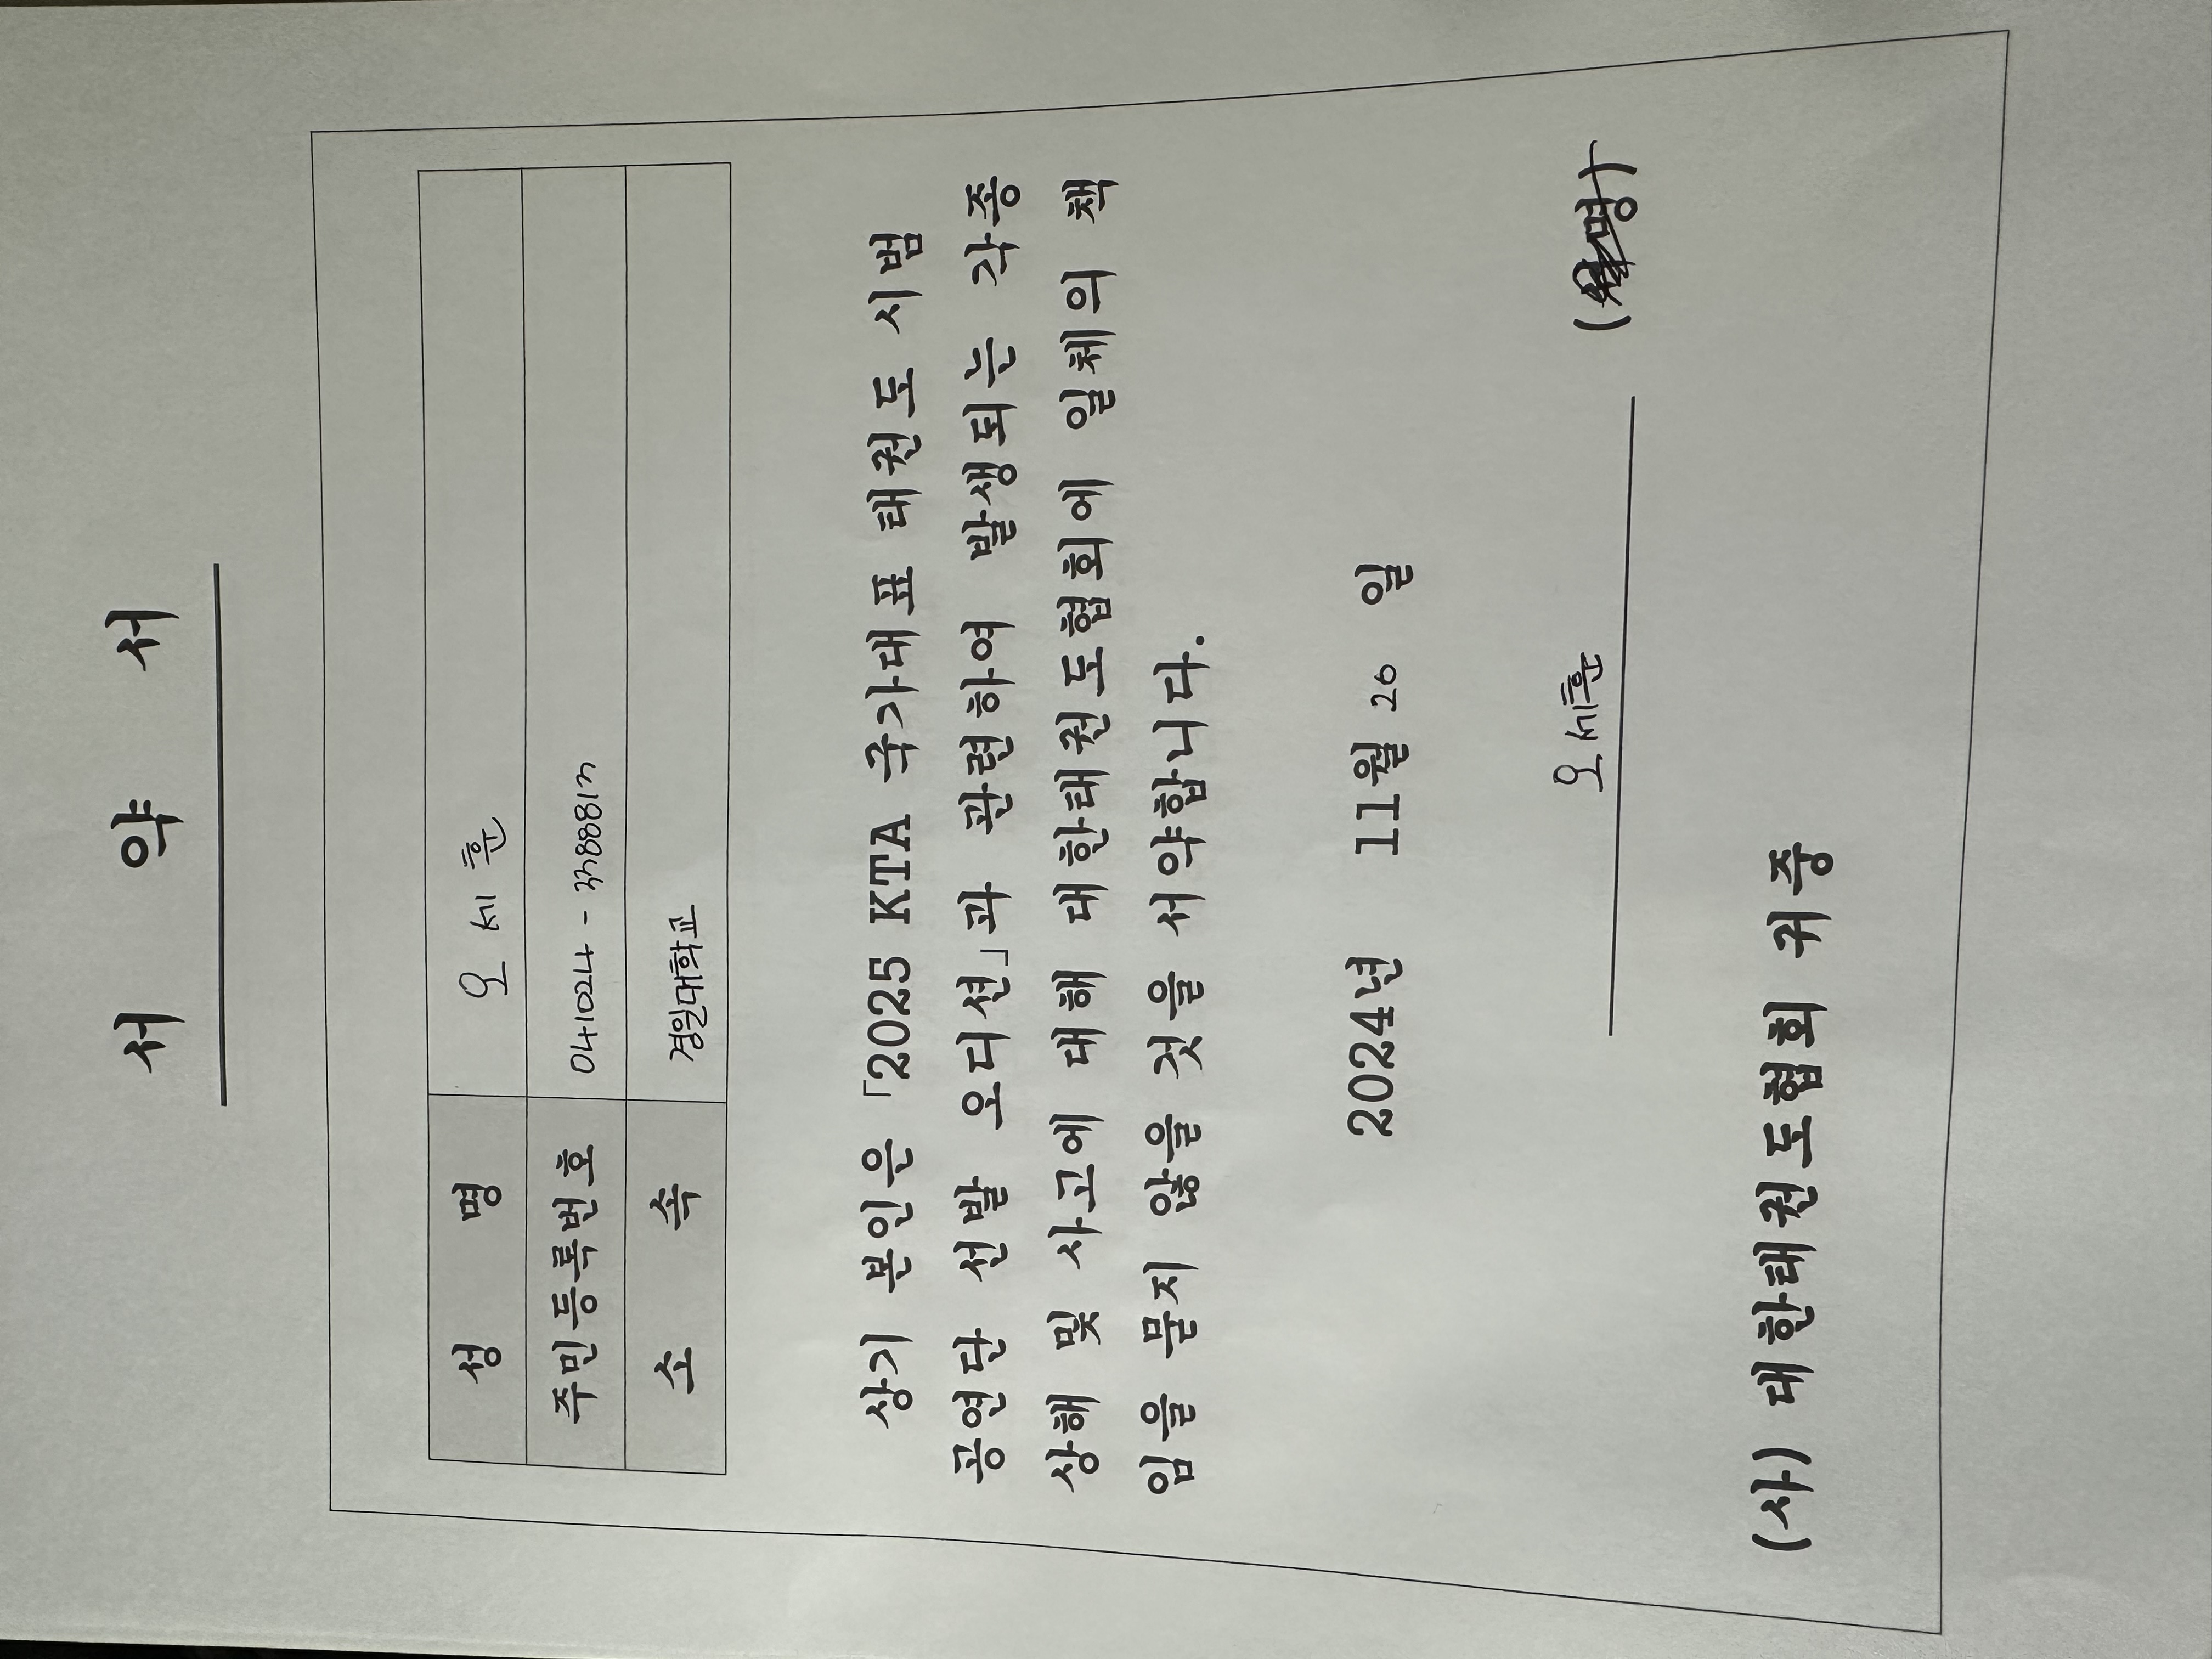 서 약 서
성 명 오 세 훈
주민등록번호 041024 -
소 속 경일대학교
상기 본인은 「2025 KTA 국가대표 태권도 시범
공연단 선발 오디션」과 관련하여 발생되는 각종
상해 및 사고에 대해 대한태권도협회에 일체의 책
임을 묻지 않을 것을 서약합니다.
2024년 11월 20 일
오세훈 (서명)
(사) 대한태권도협회 귀중